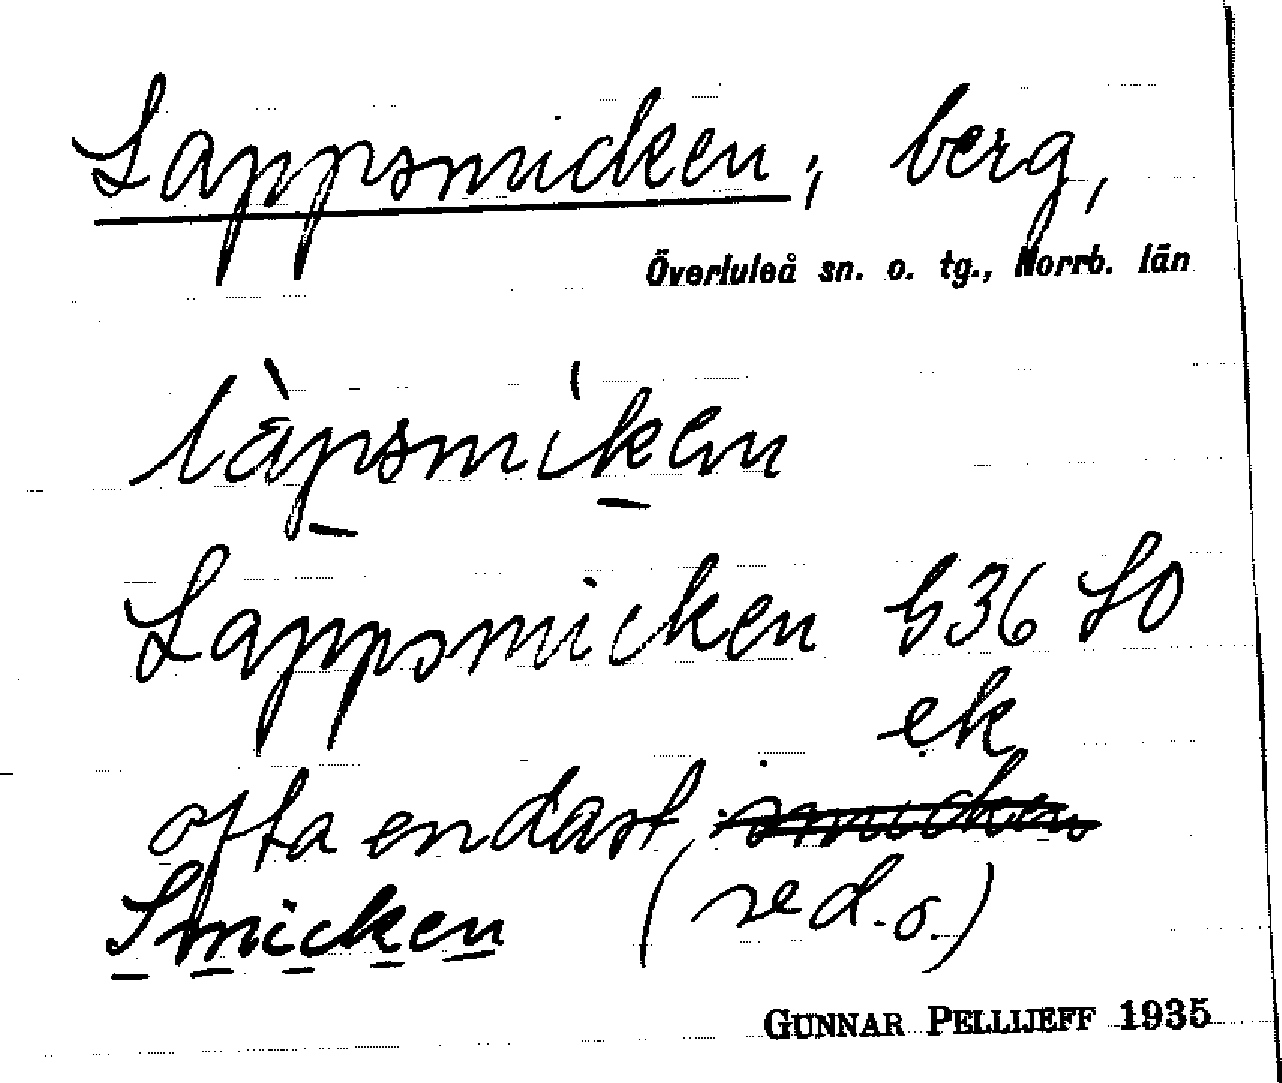 Lappsmicken, berg,
Överluleå sn. o. tg., Norrb. län
làpsmíken
Lappsmicken G36 SO
ek
ofta endast smicken
Smicken (se d.o.)
GUNNAR PELLIJEFF 1935